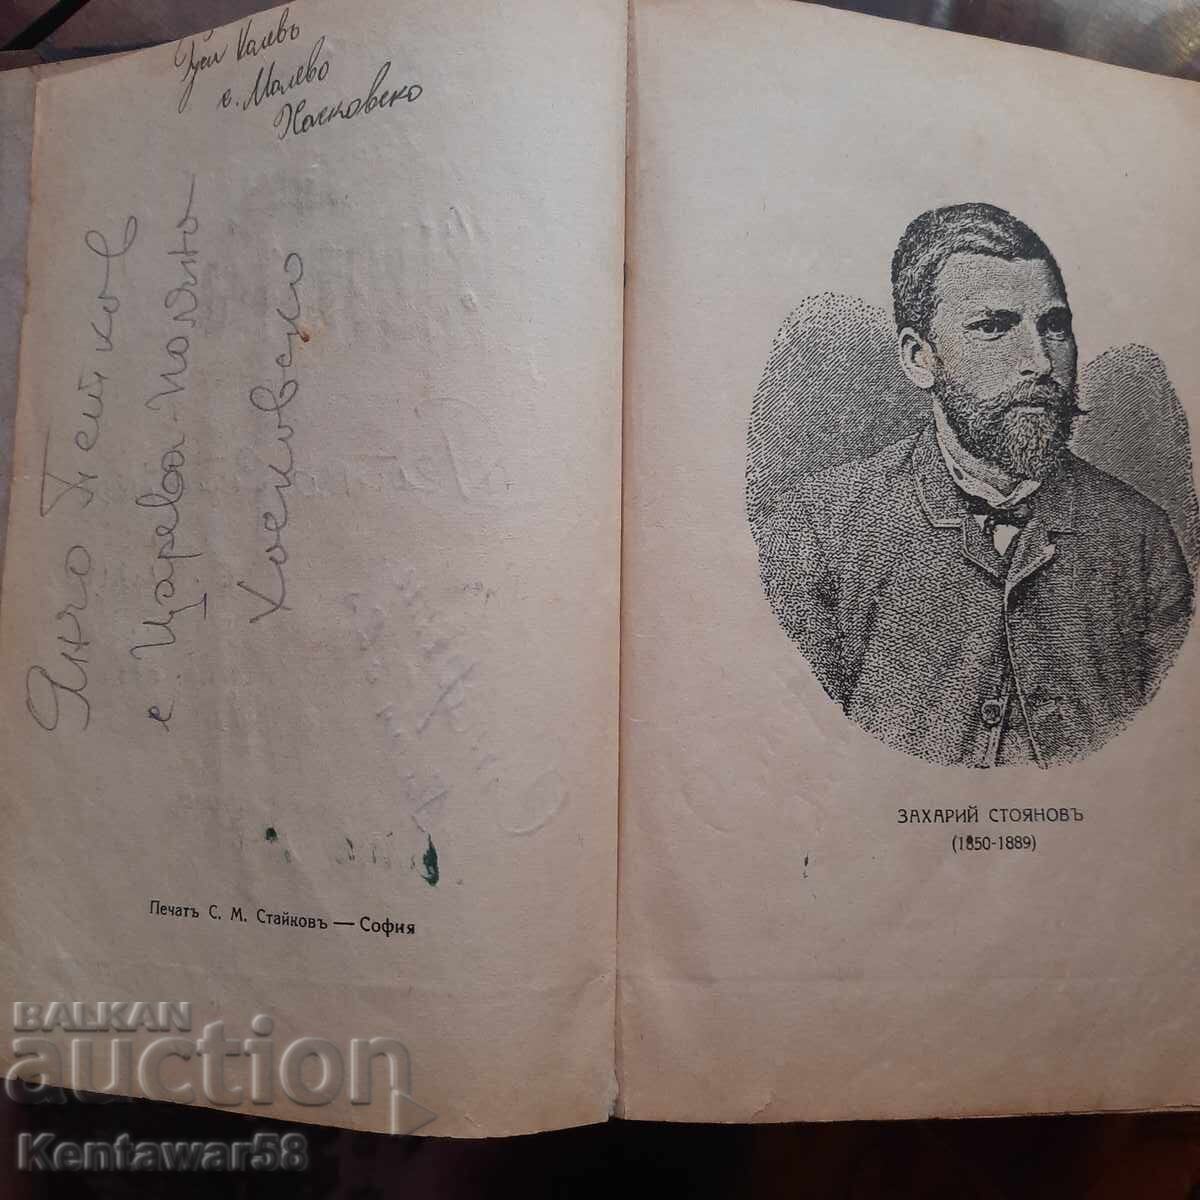 Калевъ
с. Малево
Хасковско
Янчо Пейков
с Царева-Поляна
Хасковско
Печатъ С. М. Стайковъ — София
ЗАХАРИЙ СТОЯНОВЪ
(1850-1889)
BALKAN
auction
Kentawar58